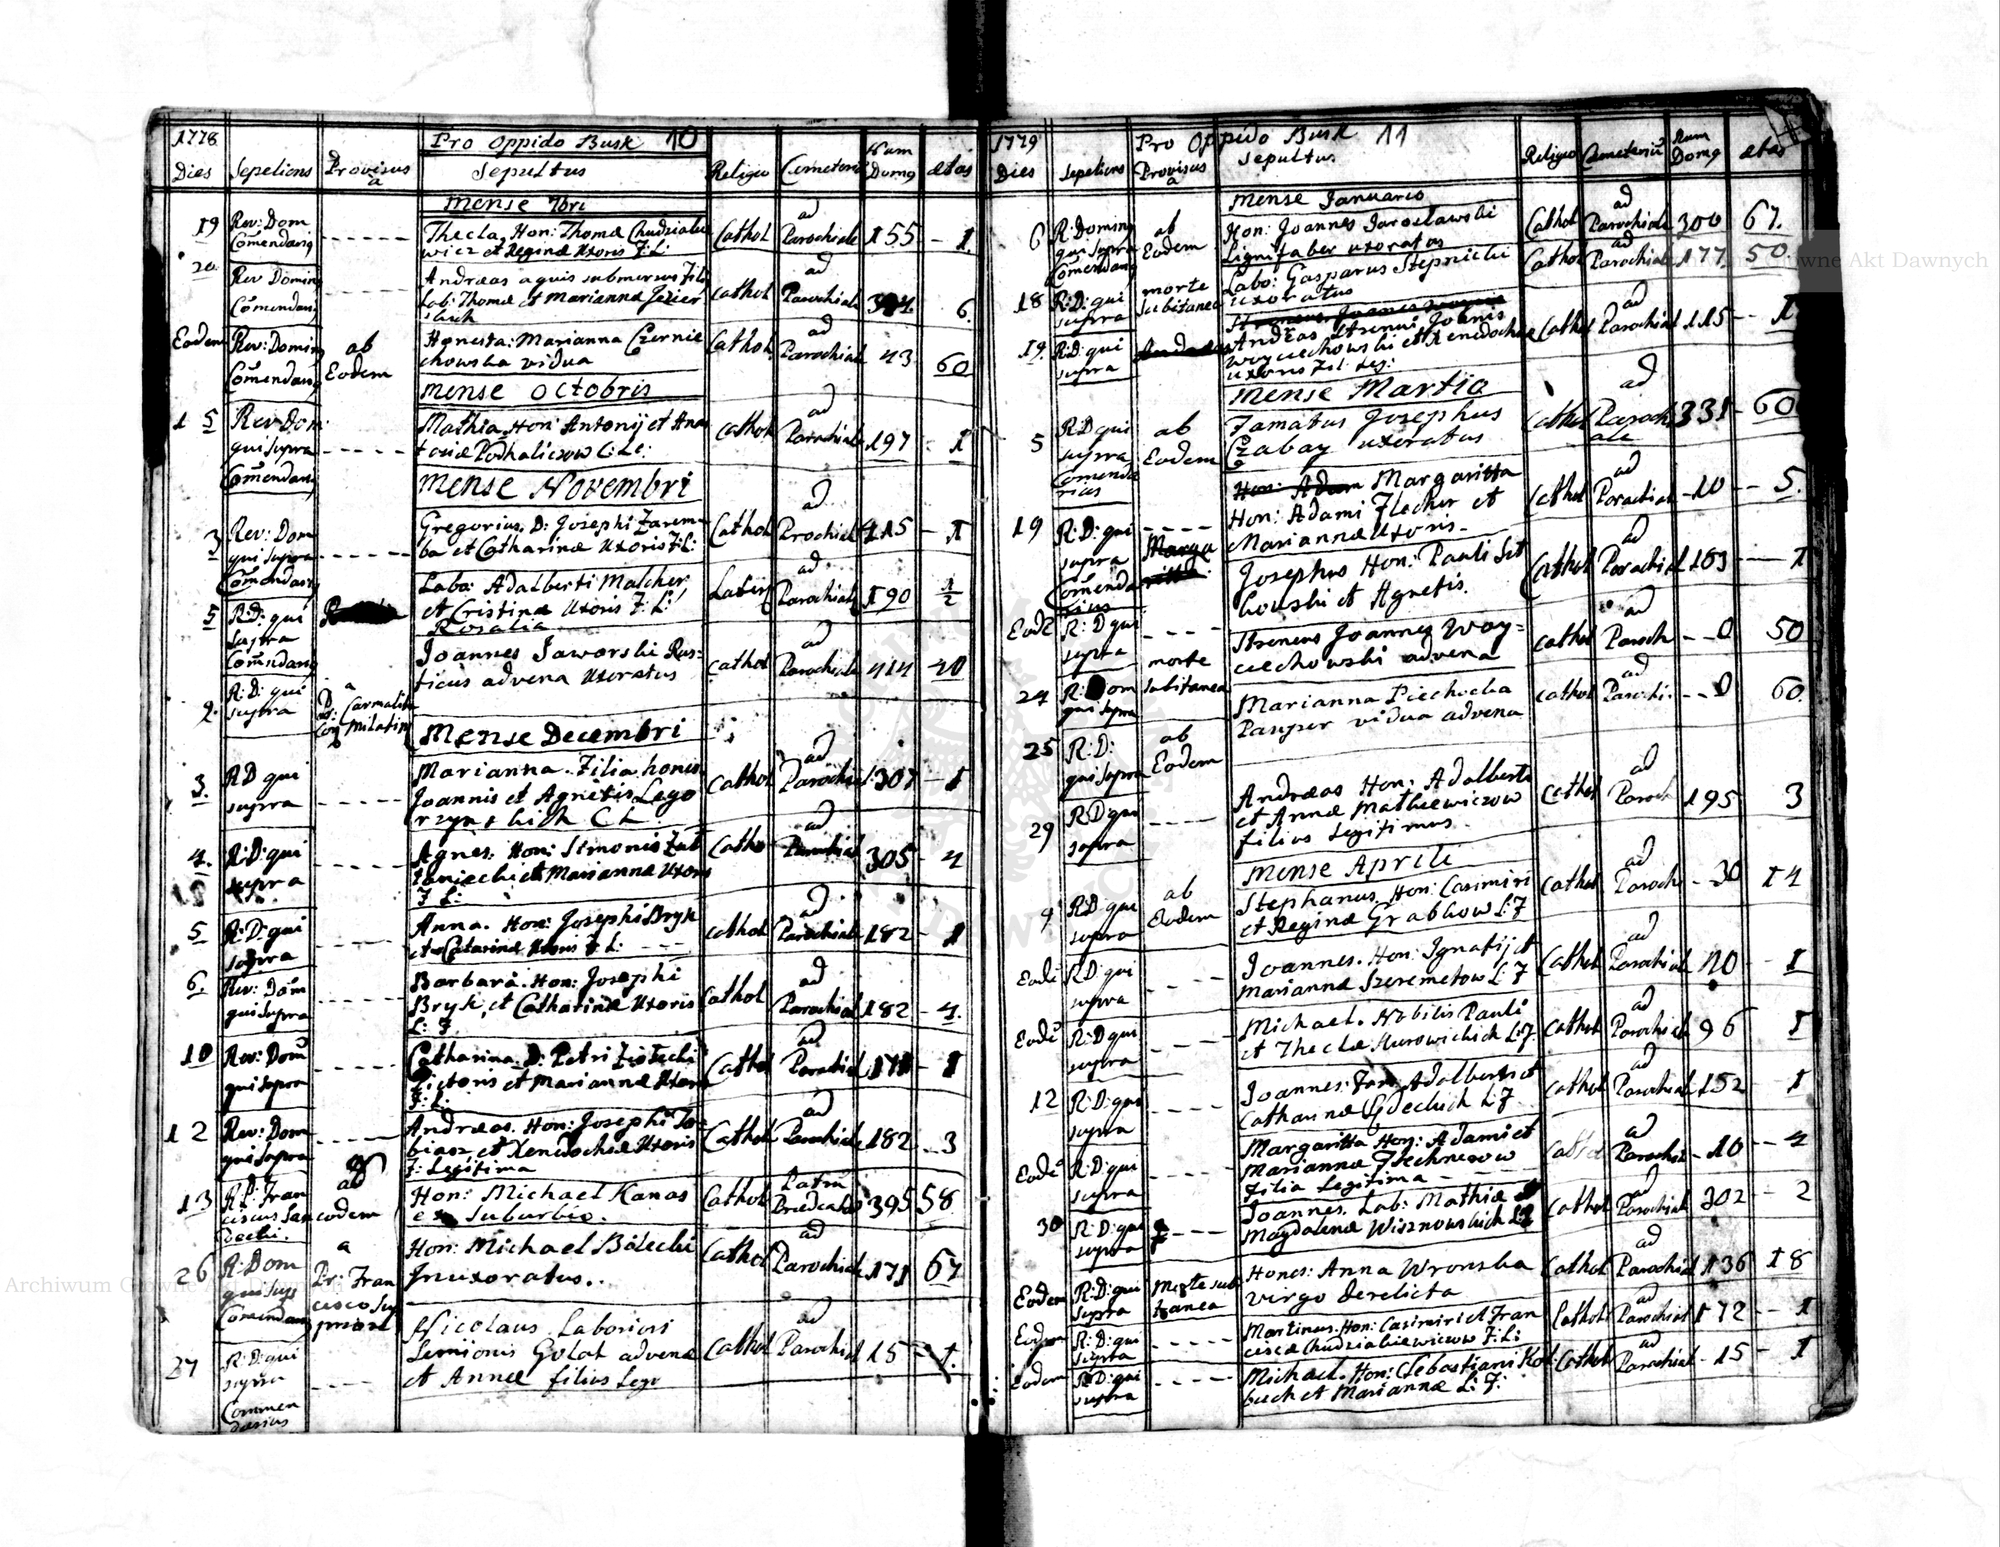 1778
Pro Oppido Busk 10
Dies Sepeliens Provisus a Sepultus Religio Cometerio Num Domg ætas
Mense 7bri
19 Rev: Dom Comendarg - - - - - Thecla, Hon: Thomæ Chudziale
wicz et Reginæ Uxoris F: L: Cathol ad Parochiale 155 - 1.
20 Rev Doming Comendarg - - - - Andræas aquis submersus Fil:
Lab: Thomæ et Mariannæ Jezier
skich Cathol ad Parochiale 6.
Eodem Rev: Doming Comendarg ab Eodem Honesta: Marianna Czernie
chowska vidua Cathol ad Parochial 43 60
Mense Octobris
15 Rev Dom qui supra Comendarg - - - - - Mathia Hon: Antonij et Ana
Podhaliczow Cathol ad Parochiale 197 - 1
Mense Novembri
3 Rev: Dom qui supra Comendarg - - - - - Gregorius. D: Josephi Zarem-
ba et Catharinæ Uxoris F: L: Cathol ad Prochial 415 - 1
5 R: D: qui supra Comendarg Labo: Adalberti Malcher
et Cristinæ Uxoris F: L:
Rosalia ad Parochiale 190 1/2
9. R: D: qui supra Joannes Jaworski Rus-
ticus advena Uxoratus Cathol ad Parochiale 414 40
Mense Decembri
3. R D qui supra - - - - - Marianna. Filia hones
Joannis et Agnetis Lego
Cathol ad Parochial 307 - 1
4. R: D: qui supra - - - - - Agnes. Hon: Simonis
et Mariannæ Uxoris
F L: Catho ad Parochial 305 - 4
5 R: D: qui supra - - - - Anna. Hon: Josephi Bryk
et Catarinæ Uxoris F: L: - - - cathol ad Parochiale 182 - 1
6. Rev: Dom qui supra - - - - - Barbara. Hon: Josephi
Bryk, et Catharinæ Uxoris
L: F Cathol ad Parochial 182 - 4.
10 Rev: Dom qui supra - - - - - Catharina. D: Petri
Pictoris et Mariannæ Uxoris
F: L: Cathol ad Parochial 171 - 1
12 Rev: Dom qui supra - - - - Andræas. Hon: Josephi To-
biasz et Xenedochæ Uxoris
F: Legitima Cathol ad Parochiale 182 - 3
13 R: P: Fran ciscus ab eodem Hon: Michael Kanas
ex Suburbio. Cathol Latin Prædicato 395 58
26 R: Dom qui supr Comendarg a Pr: Fran cisco Hon: Michael Bilecki
Inuxoratus.. Cathol ad Parochiale 171 67
27 R: D: qui supra Commen darius - - - - Nicolaus Laboriosi
Semionis Golat advenæ
et Annæ filius Legi Cathol ad Parochial 15 - 1.
1779
Pro Oppido Busk 11
Dies Sepeliens Provisus a Sepultus Religio Cemeteriũ Num Domg ætas
Mense Januario
6 R: Doming qui supra Comendarg ab Eodem Hon: Joannes Jarosławski
Lignifaber uxoratus Cathol ad Parochiale 300 67.
18 R: D: qui supra morte Subitanea Labo: Gasparus Stepnicki
uxoratus Cathol ad Parochiale 177 50
19. R: D: qui supra
Andreas Strenui Joānis
Woyciechowski et Xenedochæ
uxoris Fil: Leg: Cathol ad Parochial 115 - 1
Mense Martio
5 R: D qui supra Comenda rius ab Eodem Famatus Josephus
Czabay uxoratus Cathol ad Paroch ale 331 - 60
19 R: D: qui supra Comenda rius - - - - Hon: Adam Margaritta
Hon: Adami Flecher et
Mariannæ Uxoris - Cathol ad Parochial - 10 - - 5.
Eodē R: D qui supra - - - - Josephus Hon: Pauli
et Agnetis. Cathol ad Parochial 103 - 1
24 R: Dom qui supra morte Subitanea Strenuus Joannes Woy-
ciechowski advena Cathol ad Paroch - - 0 50
25 R: D: qui supra ab Eodem Marianna Piechocka
Pauper vidua advena Cathol ad Parochi. - - 0 60.
29 R: D qui supra - - - - Andræas Hon: Adalberti
et Annæ Mathiewiczow
filius Legitimus. Cathol ad Paroch 195 3
Mense Aprili
9 R: D: qui supra ab Eodem Stephanus. Hon: Casimiri
et Reginæ Grabkow L: F Cathol ad Paroch - 30 14
Eodē R: D: qui supra - - - - Joannes. Hon: Ignatij et
Mariannæ Szeremetow L: F Cathol ad Parochial - 1
Eodē R: D qui supra - - - - Michael. Nobilis Pauli
et Theclæ L: F. Cathol ad Parochial 96 1
12 R: D: qui supra - - - - Joannes: Adalberti et
Catharinæ L: F Cathol ad Parochial 152 - 1
Eodē R: D: qui supra - - - - Margaritta Hon: Adami et
Mariannæ Flechnerow
Filia Legitima - Cathol ad Parochial - 10 - - 4
30 R: D: qui supra - - - - Joannes. Lab: Mathiæ et
Magdalenæ Wisznowskich L: F Cathol ad Parochial 302 - - 2
Eodem R: D: qui supra Morte sub itanea Hones: Anna Wronska
virgo derelicta Cathol ad Parochial 136 18
Eodem R: D: qui supra - - - - Martinus. Hon: Casimiri et Fran
ciscæ Chudziakiewiczow F: L: Cathol ad Parochial 172 - - 1
Eodem R: D: qui supra - - - - Michael. Hon: Sebastiani Kol
buch et Mariannæ L: F: Cathol ad Parochial - 15 - 1
Archiwum Główne Akt Dawnych
Archiwum Główne Akt Dawnych